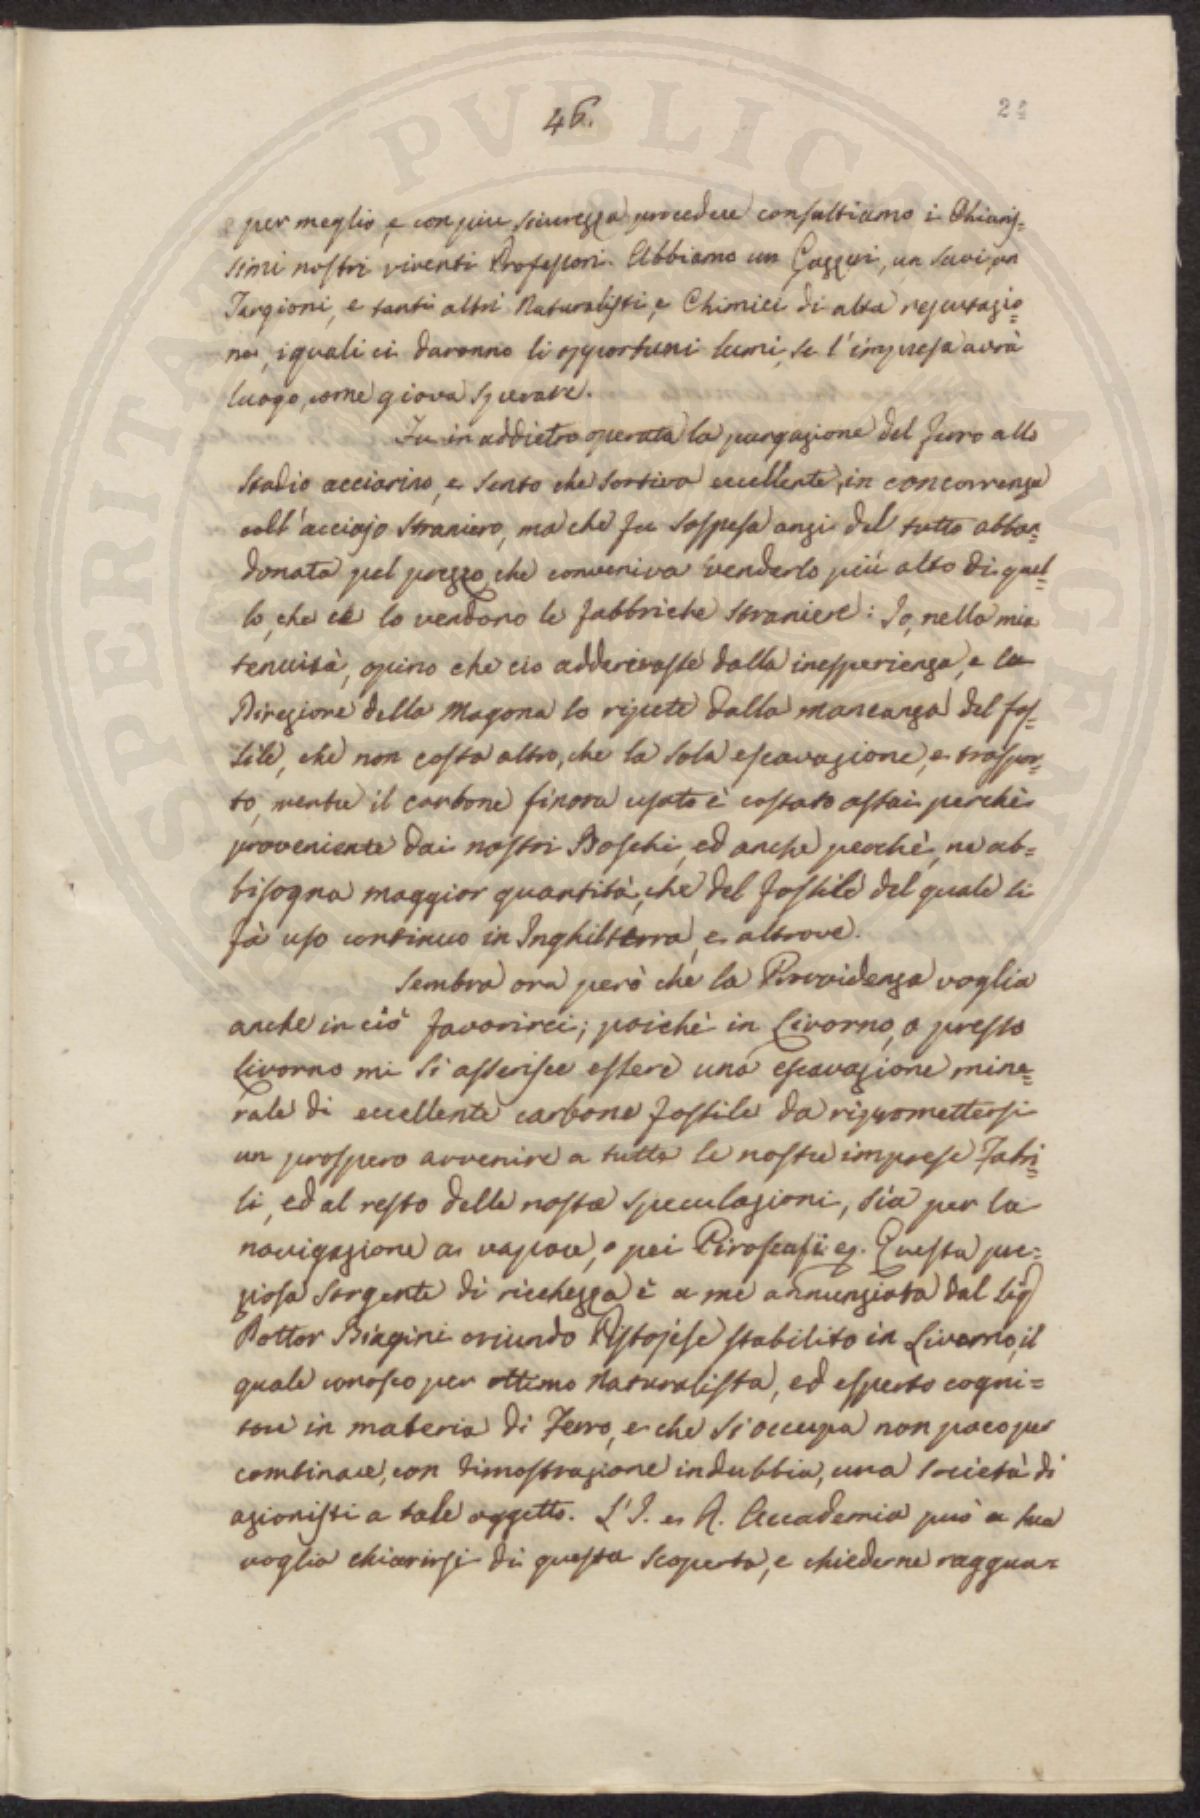 46.
24
per meglio, e con piu sicurezza procedere consultiamo i Chiaris=
simi nostri viventi Professori. Abbiamo un Gazzeri, un Savi, un
Targioni, e tanti altri Naturalisti, e Chimici di alta reputazio=
ne, i quali ci daranno li opportuni lumi, se l'impresa avrà
luogo, come giova sperare.
Fu in addietro operata la purgazione del ferro allo
Stadio acciarino, e sento che sortiva eccellente, in concorrenza
coll'acciajo straniero, ma che fu sospesa anzi del tutto abban=
donata pel prezzo, che conveniva venderlo più alto di quel=
lo, che ce lo vendono le fabbriche straniere: Io, nella mia
tenuità, opino che ciò adderivasse dalla inesperienza, e la
Direzione della Magona lo ripete dalla mancanza del fos=
sile, che non costa altro, che la sola escavazione, e traspor=
to, mentre il carbone finora usato è costato assai perchè
proveniente dai nostri Boschi, ed anche perchè, ne ab=
bisogna maggior quantità, che del fossile del quale si
fà uso continuo in Inghilterra, e altrove.
Sembra ora però che la Provvidenza voglia
anche in ciò favorirci; poichè in Livorno, o presso
Livorno mi si asserisce essere una escavazione mine=
rale di eccellente carbone fossile da ripromettersi
un prospero avvenire a tutte le nostre imprese Fabri=
li, ed al resto delle nostre speculazioni, sia per la
navigazione a vapore, o pei Piroscafi eg. Questa pre=
ziosa sorgente di ricchezza è a me annunziata dal Sig.
Dottor Biagini oriundo Pistojese stabilito in Livorno, il
quale conosco per ottimo Naturalista, ed esperto cogni=
tore in materia di Ferro, e che si occupa non poco per
combinare, con dimostrazione indubbia, una società di
azionisti a tale oggetto. L'I. e R. Accademia può a sua
voglia chiarirsi di questa scoperta, e chiederne raggua=
SPERITAS PVBLICA AVGEN